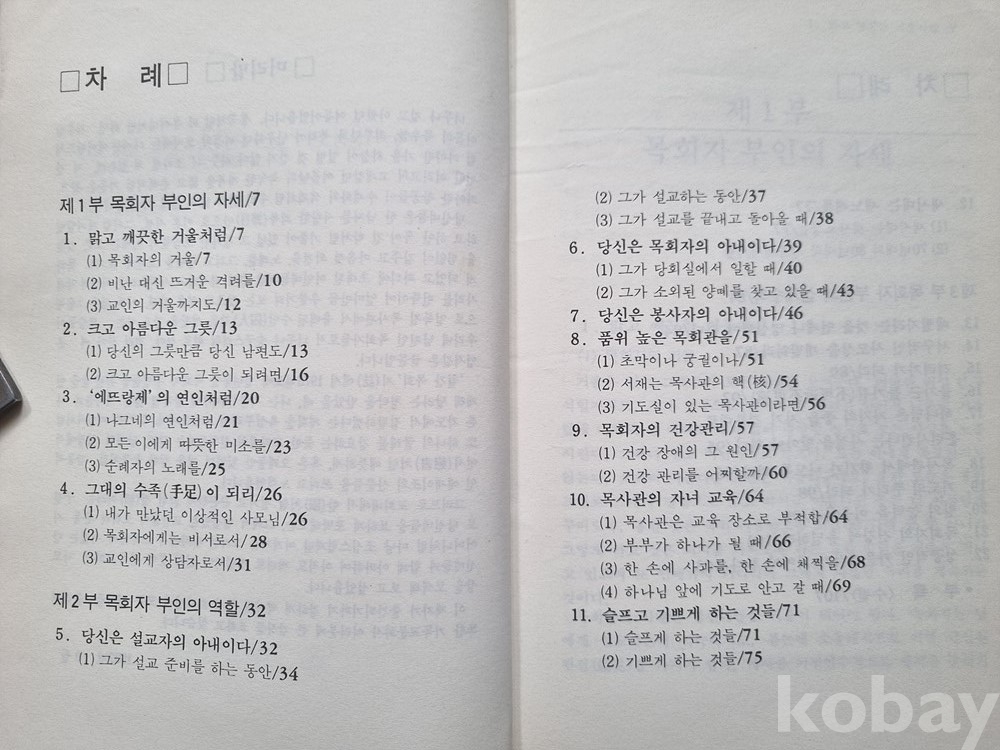 □차 례□
제1부 목회자 부인의 자세/7
1. 맑고 깨끗한 거울처럼/7
(1) 목회자의 거울/7
(2) 비난 대신 뜨거운 격려를/10
(3) 교인의 거울까지도/12
2. 크고 아름다운 그릇/13
(1) 당신의 그릇만큼 당신 남편도/13
(2) 크고 아름다운 그릇이 되려면/16
3. ‘에뜨랑제’의 연인처럼/20
(1) 나그네의 연인처럼/21
(2) 모든 이에게 따뜻한 미소를/23
(3) 순례자의 노래를/25
4. 그대의 수족(手足)이 되리/26
(1) 내가 만났던 이상적인 사모님/26
(2) 목회자에게는 비서로서/28
(3) 교인에게 상담자로서/31
제2부 목회자 부인의 역할/32
5. 당신은 설교자의 아내이다/32
(1) 그가 설교 준비를 하는 동안/34
(2) 그가 설교하는 동안/37
(3) 그가 설교를 끝내고 돌아올 때/38
6. 당신은 목회자의 아내이다/39
(1) 그가 당회실에서 일할 때/40
(2) 그가 소외된 양떼를 찾고 있을 때/43
7. 당신은 봉사자의 아내이다/46
8. 품위 높은 목회관을/51
(1) 초막이나 궁궐이나/51
(2) 서재는 목사관의 핵(核)/54
(3) 기도실이 있는 목사관이라면/56
9. 목회자의 건강관리/57
(1) 건강 장애의 그 원인/57
(2) 건강 관리를 어찌할까/60
10. 목사관의 자녀 교육/64
(1) 목사관은 교육 장소로 부적합/64
(2) 부부가 하나가 될 때/66
(3) 한 손에 사과를, 한 손에 채찍을/68
(4) 하나님 앞에 기도로 안고 갈 때/69
11. 슬프고 기쁘게 하는 것들/71
(1) 슬프게 하는 것들/71
(2) 기쁘게 하는 것들/75
kobay